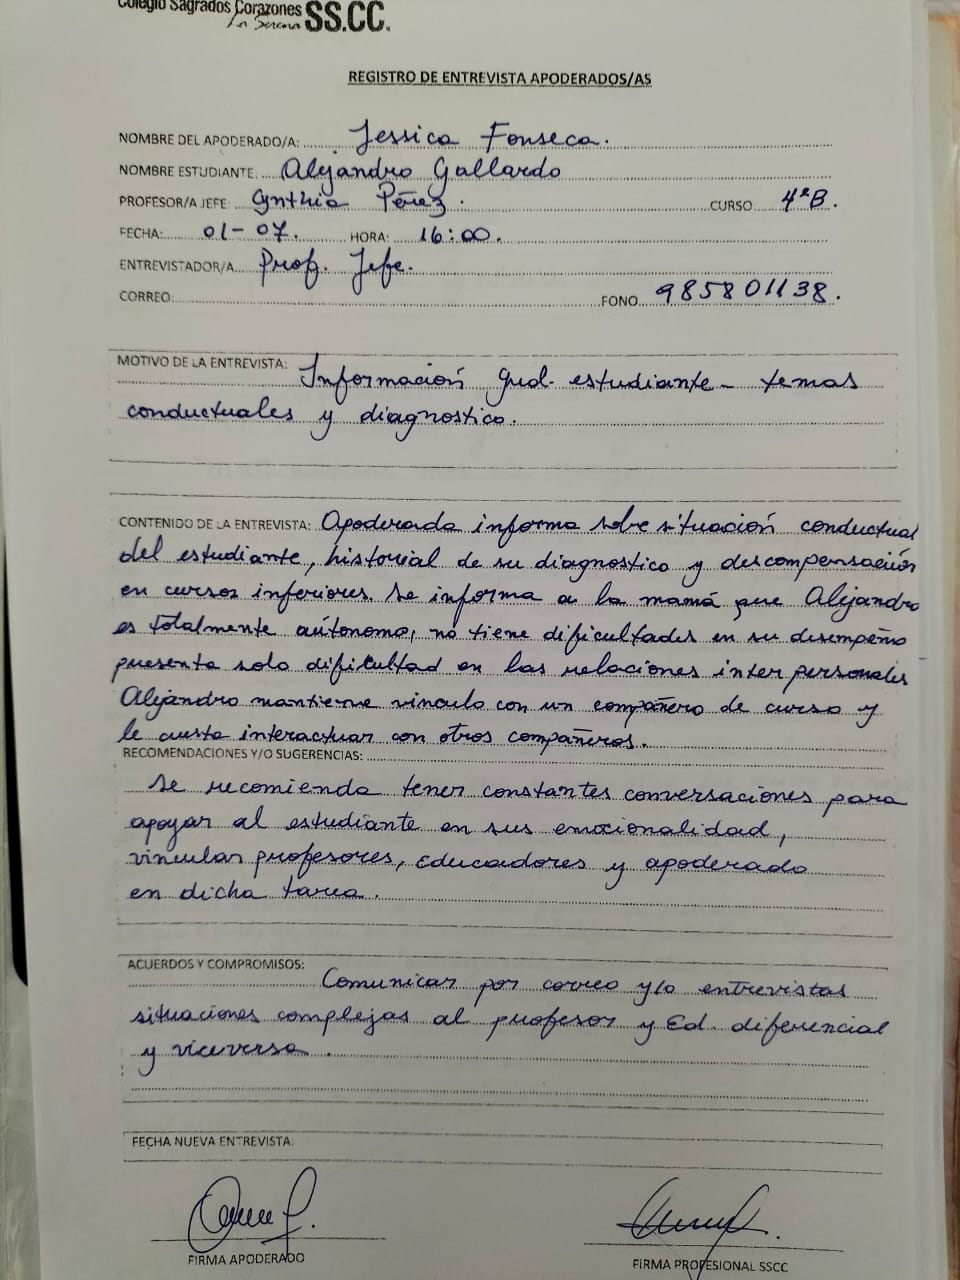 Colegio Sagrados Corazones
La Serena SS.CC.
REGISTRO DE ENTREVISTA APODERADOS/AS
NOMBRE DEL APODERADO/A: Jessica Fonseca.
NOMBRE ESTUDIANTE: Alejandro Gallardo
PROFESOR/A JEFE: Cynthia Pérez. CURSO 4°B.
FECHA: 01-07. HORA: 16:00.
ENTREVISTADOR/A Prof. Jefe.
CORREO: FONO 985801138.
MOTIVO DE LA ENTREVISTA: Información gral. estudiante - temas
conductuales y diagnostico.
CONTENIDO DE LA ENTREVISTA: Apoderada informa sobre situación conductual
del estudiante, historial de su diagnostico y descompensación
en cursos inferiores. Se informa a la mamá que Alejandro
es totalmente autonomo, no tiene dificultades en su desempeño
presenta solo dificultad en las relaciones interpersonales
Alejandro mantiene vinculo con un compañero de curso y
le cuesta interactuar con otros compañeros.
RECOMENDACIONES Y/O SUGERENCIAS:
Se recomienda tener constantes conversaciones para
apoyar al estudiante en sus emocionalidad,
vincular profesores, educadores y apoderado
en dicha tarea.
ACUERDOS Y COMPROMISOS:
Comunicar por correo y/o entrevistas
situaciones complejas al profesor y Ed. diferencial
y viceversa.
FECHA NUEVA ENTREVISTA:
FIRMA APODERADO
FIRMA PROFESIONAL SSCC